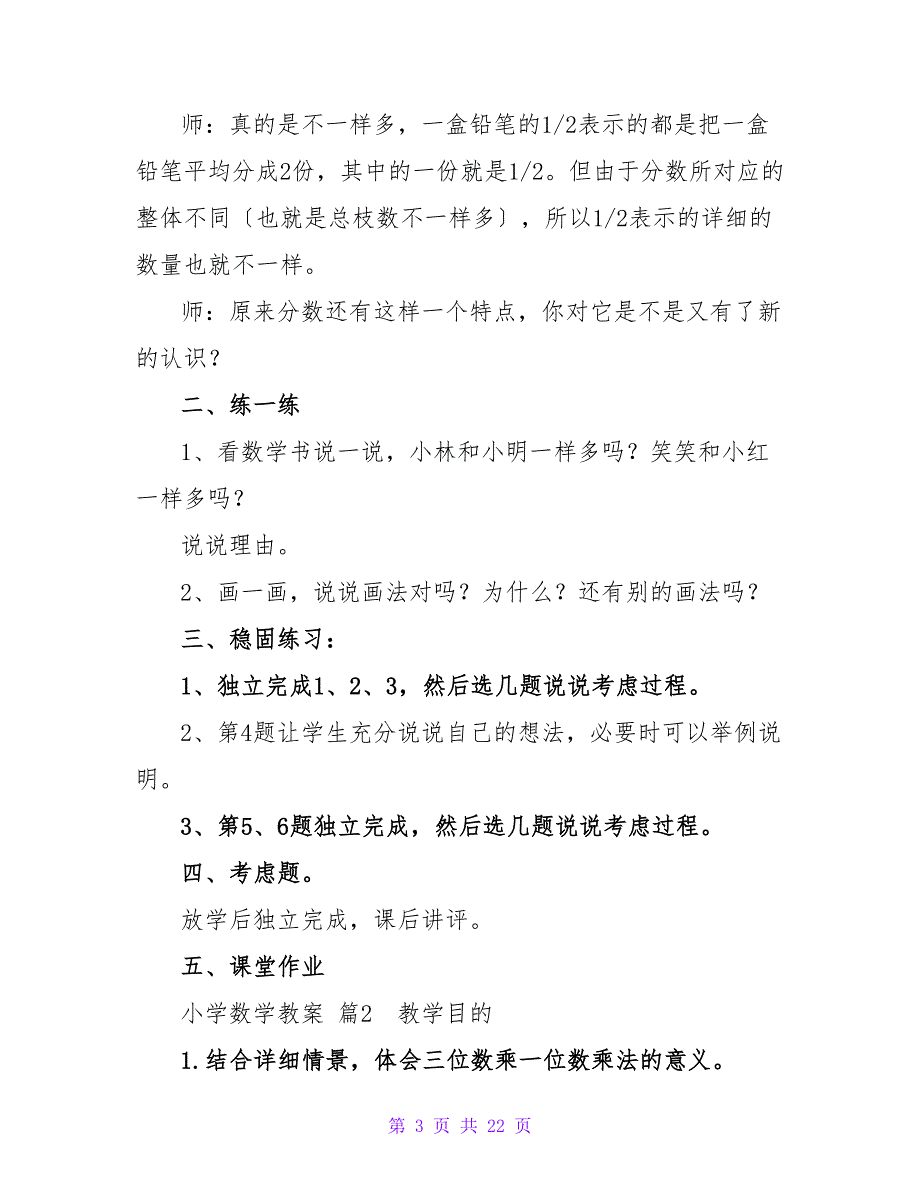 师：真的是不一样多，一盒铅笔的1/2表示的都是把一盒
铅笔平均分成2份，其中的一份就是1/2。但由于分数所对应的
整体不同〔也就是总枝数不一样多〕，所以1/2表示的详细的
数量也就不一样。
师：原来分数还有这样一个特点，你对它是不是又有了新
的认识？
二、练一练
1、看数学书说一说，小林和小明一样多吗？笑笑和小红
一样多吗？
说说理由。
2、画一画，说说画法对吗？为什么？还有别的画法吗？
三、稳固练习：
1、独立完成1、2、3，然后选几题说说考虑过程。
2、第4题让学生充分说说自己的想法，必要时可以举例说
明。
3、第5、6题独立完成，然后选几题说说考虑过程。
四、考虑题。
放学后独立完成，课后讲评。
五、课堂作业
小学数学教案 篇2　教学目的
1.结合详细情景，体会三位数乘一位数乘法的意义。
第 3 页 共 22 页